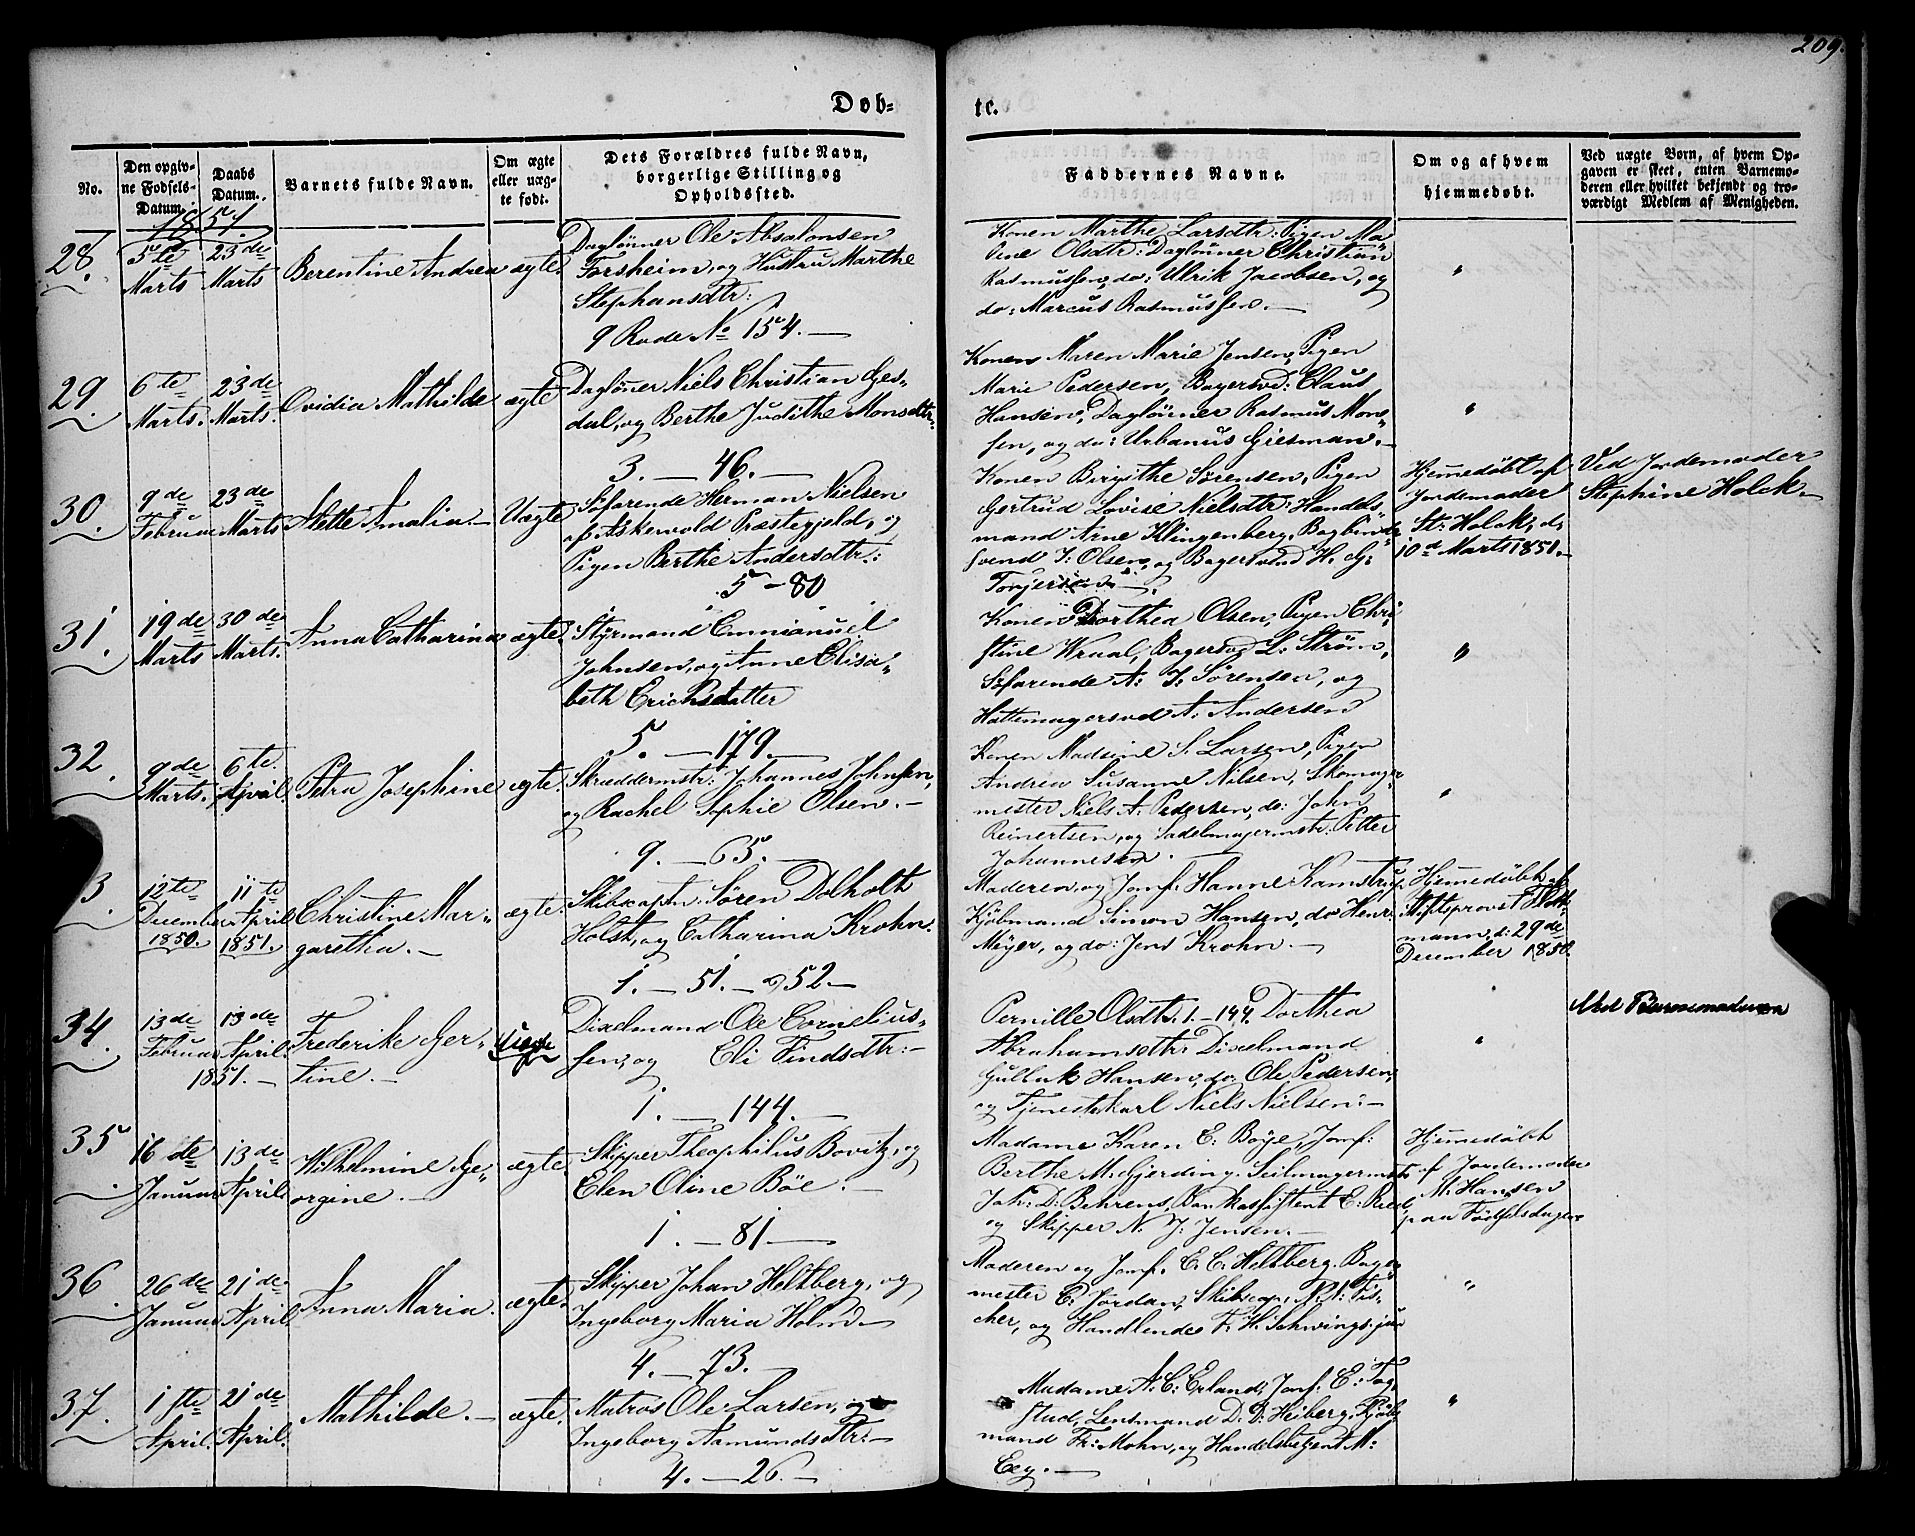 209.
Døb-
te.
No.
Den opgiv-
ne Fødsels-
Datum.
Daabs
Datum.
Barnets fulde Navn.
Om ægte
eller uæg-
te født.
Dets Forældres fulde Navn,
borgerlige Stilling og
Opholdssted.
Faddernes Navne.
Om og af hvem
hjemmedøbt.
Ved uægte Børn, af hvem Op-
gaven er skeet, enten Barnemo-
deren eller hvilket bekjendt og tro-
værdigt Medlem af Menigheden.
1851.
28.
5te
Marts
23de
Marts
Berentine Andrea
ægte.
Daglønner Ole Absalonsen
Forsheim, og Hustru Marthe
Stephansdtr:
9 Rode No 154.—
Konen Marthe Larsdtr: Pigen Ma-
rine Olsdtr: Daglønner Christian
Rasmussen, do: Ulrik Jacobsen, og
do: Marcus Rasmussen.—
"
29.
6te
Marts.
23de
Marts.
Ovidia Mathilde
ægte
Daglöner Niels Christian Ges-
dal, og Berthe Judithe Monsdtr:
3.—46.—
Konen Maren Marie Jensen, Pigen
Marie Pedersen, Bagersvd: Claus
Hansen, Daglønner Rasmus Mon-
sen, og do: Urbanus Giesman.—
"
30.
9de
Februar
23de
Marts
Alette Amalia.—
Uægte
Søfarende Herman Nielsen
af Askevold Præstegjeld, og
Pigen Berthe Andersdtr.:
5—80
Konen Birgithe Sørensen, Pigen
Gertrud Lovise Nielsdtr: Handels-
mand Arne Klingenberg, Bogbinder-
svend J: Olsen, og Bagersvend H. G:
Torjersen.—
Hjemmedøbt af
Jordemoder
St: Holck, d:
10d Marts 1851.—
Ved Jordemoder
Stephine Holck—
31.
19de
Marts
30de
Marts.
Anna Catharina
ægte.
Styrmand Emmanuel
Johnsen, og Anne Elisa-
beth Erichsdatter
5.—179.—
Konen Dorthea Olsen, Pigen Chri-
stine Wraal, Bagersvd L: Strøm,
Søfarende A: J: Sörensen, og
Hattemagersvd A: Andersen
"
32.
9de
Marts.
6te
April.
Petra Josephine
ægte.
Skræddermstr: Johannes Johnsen,
og Rachel Sophie Olsen.—
9.—65.—
Konen Madsine S. Larsen, Pigen
Andrea Susanne Nilsen, Skomager-
mester Niels A: Pedersen, do: John
Reinertsen, og Sadelmagermstr: Petter
Johannesen.
"
3
12te
December
1850.
11te
April
1851.
Christine Mar-
garetha.—
ægte.
Skibscaptn. Søren Dolholt
Holst, og Catharina Krohn.
1.—51.—252.—
Moderen, og Jomf. Hanne Kamstrup,
Kjøbmand Simon Hansen, do Henr:
Meyer, og do: Jens Krohn.—
Hjemmedøbt af
Stiftsprovst
d: 29de
December 1850.
34.
13de
Februar
13de
April.
1851.—
Frederike Ger-
tine.—
Uægte
Dixelmand Ole Cornelius-
sen, og Eli Findsdtr:—
1.—144.—
Pernille Olsdtr. 1.—144. Dorthea
Abrahamsdtr: Dixelmand
Gulluk Hansen, do: Ole Pedersen,
og Tjenestekarl Niels Nielsen:—
"
Ved Barnemoderen
35.
16de
Januar
13de
April
Wilhelmine Ge-
orgine.—
ægte.
Skipper Theophilus Bovitz, og
Elen Oline Böe.—
1.—81.—
Madame Karen E: Boye, Jomf:
Berthe M: Gjerding. Seilmagermstr:
Joh: D: Behrens, Bankassistent C: Ried,
og Skipper N. J: Jensen.—
Hjemmedøbt
af Jordemoder
M: Hansen
paa Fødselsdagen
36.
26de
Januar
21de
April
Anna Maria.
ægte.
Skipper Johan Heltberg, og
Ingeborg Maria Holm.—
4.—73.—
Moderen og Jomf. C. C. Heltberg. Bager-
mester C: Jordan, Skibscap: Fis-
cher, og Handlende F: H: Schwings jun
"
37.
1ste
April.
21de
April.
Mathilde.—
ægte.
Matros Ole Larsen, og
Ingeborg Aamundsdtr:—
4.—26.—
Madame A: C: Erland, Jomf: E: Fog-
stud, Lensmand D. D: Heiberg, Kjøb-
mand Fr: Mohn, og Handelsbetjent M:
Eeg.—
"